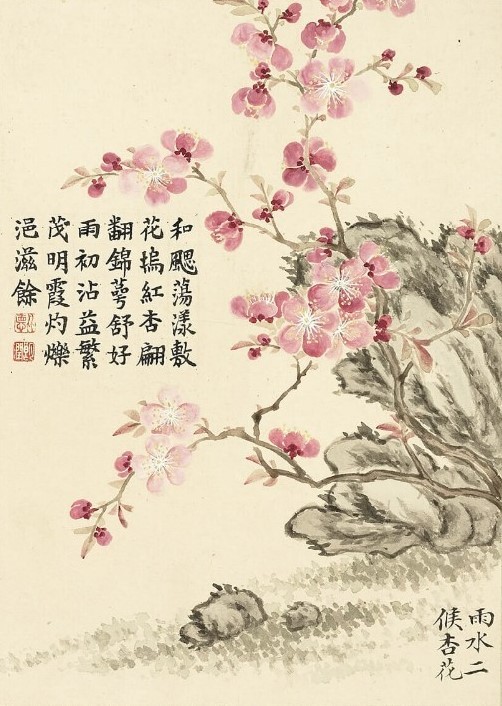 和颸蕩漾敷
花塢紅杏翩
翻錦萼舒好
雨初沾益繁
茂明霞灼爍
浥滋餘
雨水二
候杏花